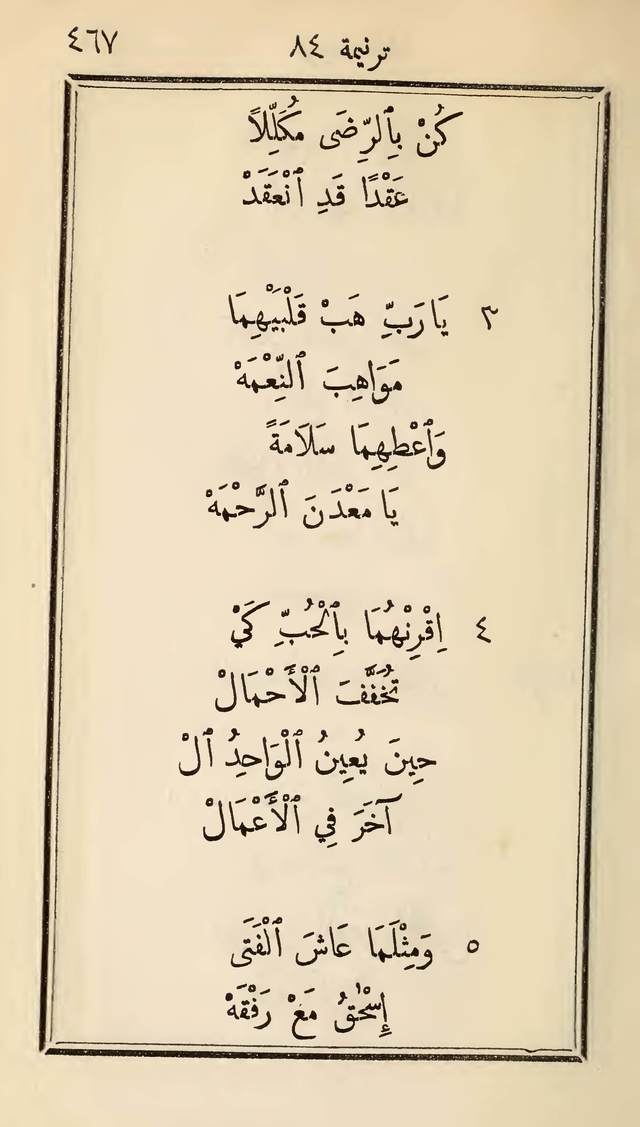 ترنيمة ٨٤ ٤٦٧
كُنْ بِٱلرِّضَى مُكَلِّلاً
عَقْدًا قَدِ ٱنْعَقَدْ
٣ يَا رَبِّ هَبْ قَلْبَيْهِمَا
مَوَاهِبَ ٱلنِّعْمَهْ
وَٱعْطِهِمَا سَلَامَةً
يَا مَعْدَنَ ٱلرَّحْمَهْ
٤ اِقْرِنْهُمَا بِٱلْحُبِّ كَيْ
تُخَفَّفَ ٱلْأَحْمَالْ
حِينَ يُعِينُ ٱلْوَاحِدُ ٱلْ
آخَرَ فِي ٱلْأَعْمَالْ
٥ وَمِثْلَمَا عَاشَ ٱلْفَتَى
إِسْحٰقُ مَعْ رَفْقَهْ